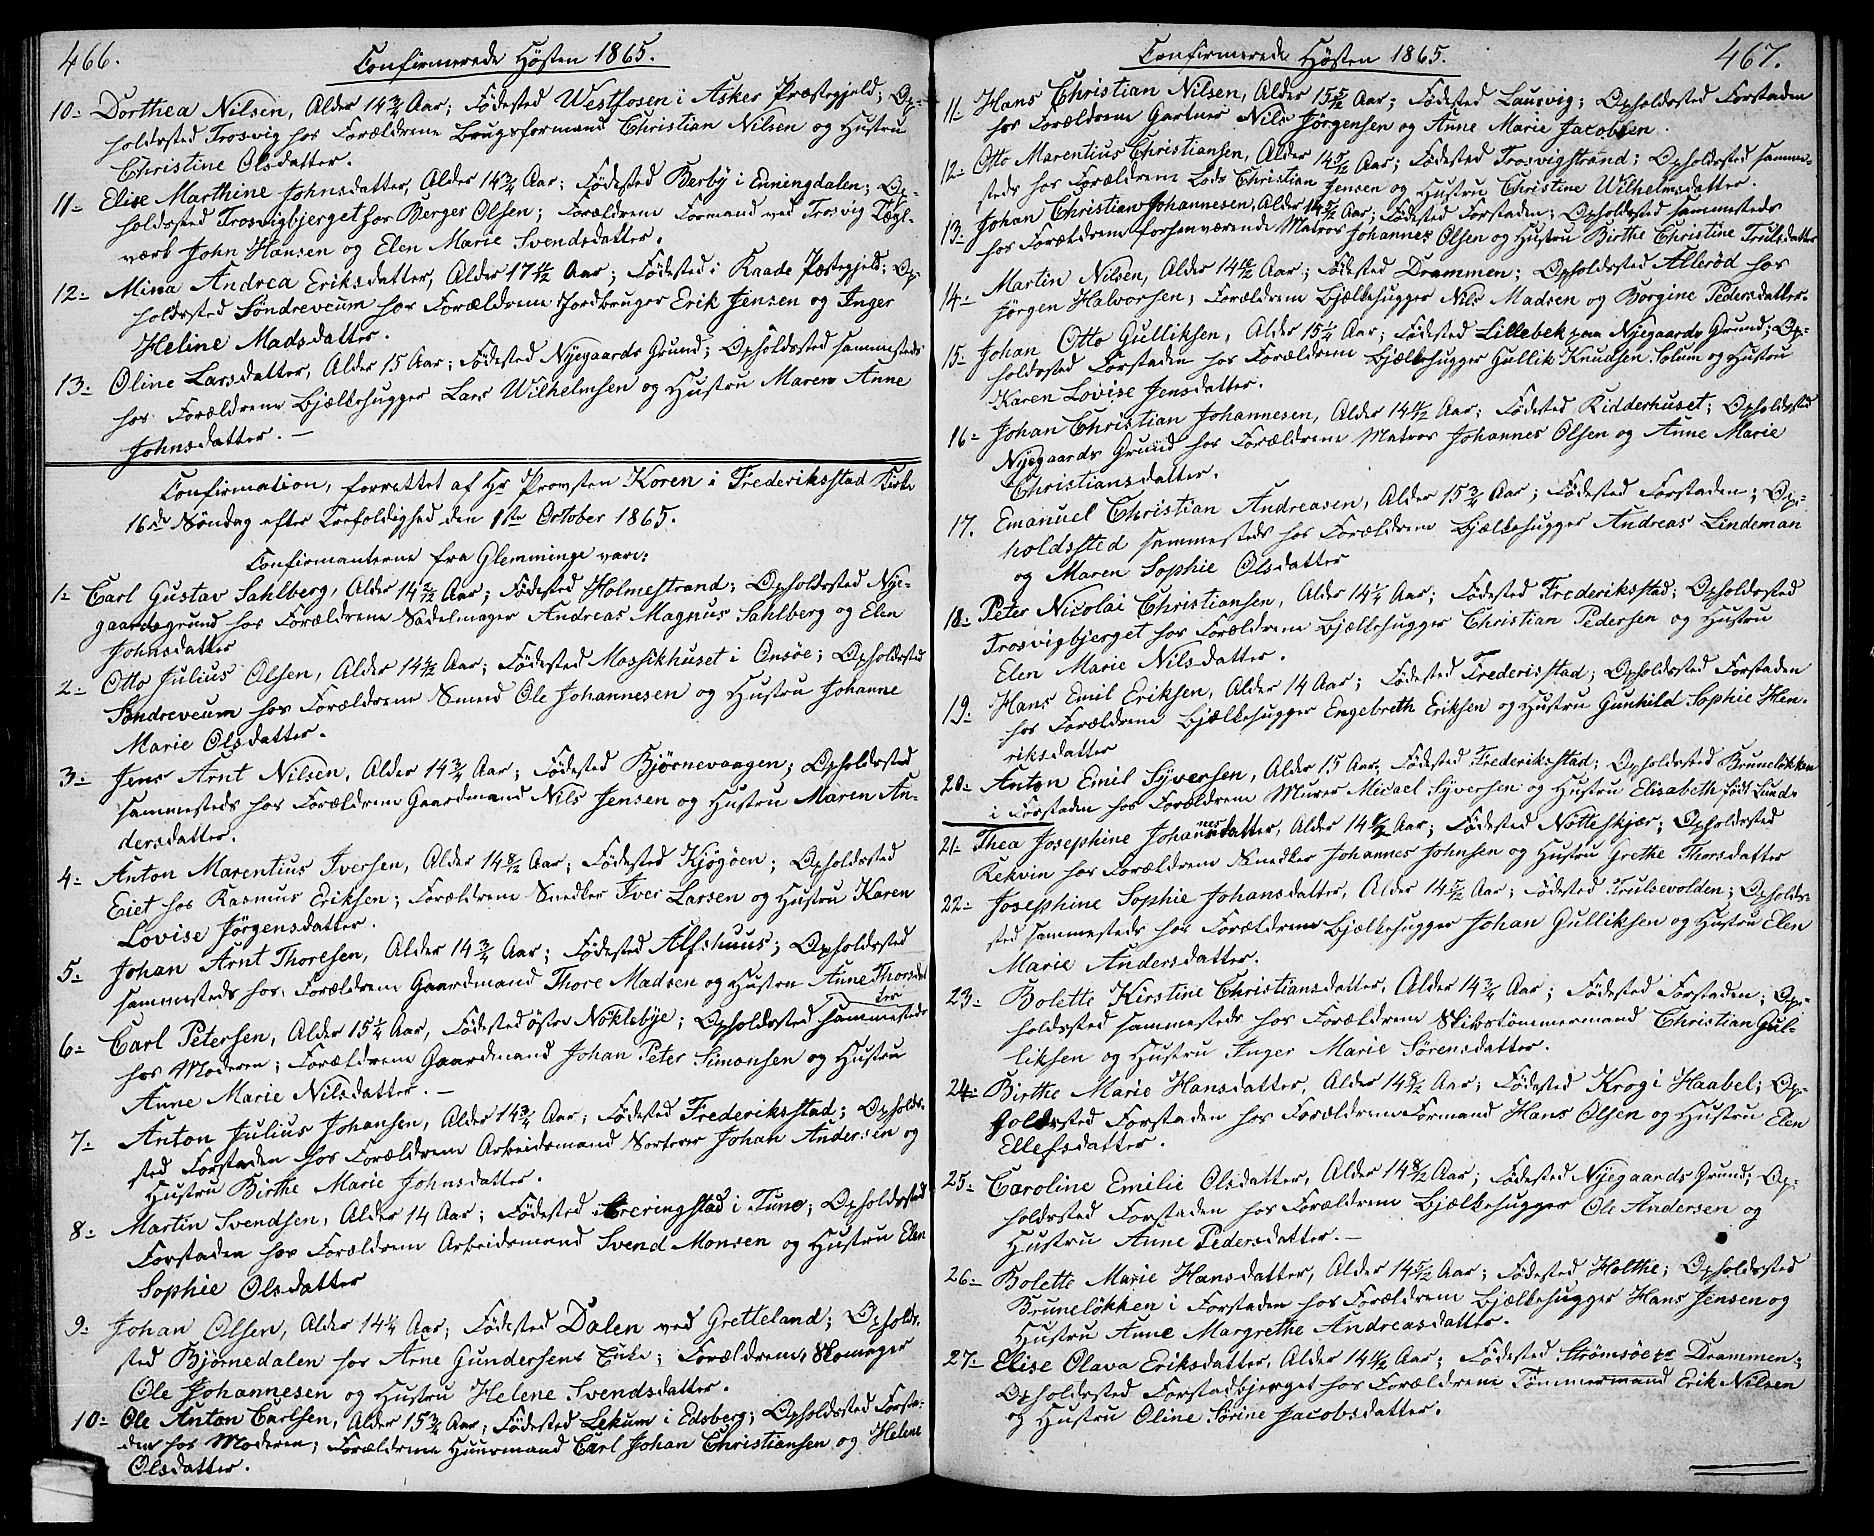 466.
Confirmerede Høsten 1865.
10- Dorthea Nilsen, Alder 14 3/4 Aar; Fødested Westfosen i Asker Præstegjeld; Op-
holdssted Trosvig hos Forældrene Brugsformand Christian Nilsen og Hustru
Christine Olsdatter.
11- Elise Marthine Johnsdatter, Alder 14 3/4 Aar; Fødested Berby i Enningdalen; Op-
holdssted Trosvigbjerget hos Berger Olsen; Forældrene Formand ved Trosvig Tægl-
værk John Hansen og Elen Marie Svendsdatter.
12- Mina Andrea Eriksdatter, Alder 17 Aar; Fødested i Raade Præstegjeld; Op-
holdssted Søndreveum hos Forældrene Jordbruger Erik Jensen og Inger
Heline Madsdatter.
13- Oline Larsdatter, Alder 15 Aar; Fødested Nyegaards Grund; Opholdssted sammesteds
hos Forældrene Bjælkehugger Lars Wilhelmsen og Hustru Maren Anne
Johnsdatter. —
Confirmation, forrettet af Hr Provsten Koren i Frederiksstad Kirke
16de Søndag efter Trefoldighed den 1ste October 1865.
Confirmanterne fra Glemminge vare:
1- Carl Gustav Sahlberg, Alder 14 Aar; Fødested Holmestrand; Opholdssted Nye-
gaardsgrund hos Forældrene Sadelmager Andreas Magnus Sahlberg og Elen
Johnsdatter
2- Otto Julius Olsen, Alder 14 Aar; Fødested Mossikhuset i Onsøe; Opholdssted
Søndreveum hos Forældrene Smed Ole Johannesen og Hustru Johanne
Marie Olsdatter.
3- Jens Arnt Nilsen, Alder 14 3/4 Aar; Fødested Bjørnevaagen; Opholdssted
sammesteds hos Forældrene Gaardmand Nils Jensen og Hustru Maren An-
dersdatter.
4- Anton Marentius Iversen, Alder 14 8/12 Aar; Fødested Kjøgøen; Opholdssted
Eiet hos Rasmus Eriksen; Forældrene Snedker Iver Larsen og Hustru Karen
Lovise Jørgensdatter.
5- Johan Arnt Thoresen, Alder 14 3/4 Aar; Fødested Alfshuus; Opholdssted
sammesteds hos Forældrene Gaardmand Thore Madsen og Hustru Anne Thorsdat
ter
6- Carl Petersen, Alder 15 1/4 Aar, Fødested østre Nøklebye; Opholdssted sammesteds
hos Moderen; Forældrene Gaardmand Johan Peter Simonsen og Hustru
Anne Marie Nilsdatter. —
7- Anton Julius Johansen, Alder 14 3/4 Aar; Fødested Frederiksstad; Opholds-
sted Forstaden hos Forældrene Arbeidsmand Sorterer Johan Andersen og
Hustru Birthe Marie Johnsdatter.
8- Martin Svendsen, Alder 14 Aar; Fødested i Tune; Opholdssted
Forstaden hos Forældrene Arbeidsmand Svend Monsen og Hustru Elen
Sophie Olsdatter
9- Johan Olsen, Alder 14 1/4 Aar; Fødested Dalen ved Gretteland; Opholds-
sted Bjørnedalen hos Arne Gundersens Enke; Forældrene Skomager
Ole Johannesen og Hustru Helene Svendsdatter.
10- Ole Anton Carlsen, Alder 15 3/4 Aar; Fødested Lekum i Edsberg; Opholdssted Forsta-
den hos Moderen; Forældrene Huusmand Carl Johan Christiansen og Helene
Olsdatter.
Confirmerede Høsten 1865.
467.
11- Hans Christian Nilsen, Alder 15 5/12 Aar; Fødested Laurvig; Opholdssted Forstaden
hos Forældrene Gartner Nils Jørgensen og Anne Marie Jacobsen.
12- Otto Marentius Christiansen, Alder 14 5/12 Aar; Fødested Trosvigstrand; Opholdssted samme-
steds hos Forældrene Lods Christian Jensen og Hustru Christine Wilhelmsdatter.
13- Johan Christian Johannesen, Alder 14 5/12 Aar; Fødested Forstaden; Opholdssted sammesteds
hos Forældrene forhenværende Matros Johannes Olsen og Hustru Birthe Christine Trulsdatter
14- Martin Nilsen, Alder 14 10/12 Aar; Fødested Drammen; Opholdssted Allerød hos
Jørgen Halvorsen; Forældrene Bjælkehugger Nils Madsen og Borgine Pedersdatter.
15- Johan Otto Gulliksen, Alder 15 1/4 Aar; Fødested Lillebek paa Nyegaards Grund; Op-
holdssted Forstaden hos Forældrene Bjælkehugger Gullik Knudsen Solum og Hustru
Karen Lovise Jensdatter.
16- Johan Christian Johannesen, Alder 14 Aar; Fødested Ridderhuset; Opholdssted
Nyegaards Grund hos Forældrene Matros Johannes Olsen og Anne Marie
Christiansdatter.
17. Emanuel Christian Andreasen, Alder 15 3/4 Aar; Fødested Forstaden; Op-
holdssted sammesteds hos Forældrene Bjælkehugger Andreas Lindeman
og Maren Sophie Olsdatter
18- Peter Nicolai Christiansen, Alder 14 1/4 Aar; Fødested Frederiksstad; Opholdssted
Trosvigbjerget hos Forældrene Bjælkehugger Christian Pedersen og Hustru
Elen Marie Nilsdatter.
19- Hans Emil Eriksen, Alder 14 Aar; Fødested Frederisstad; Opholdssted Forstaden
hos Forældrene Bjælkehugger Engebreth Eriksen og Hustru Gunhild Sophie Hen-
riksdatter
20- Anton Emil Syversen, Alder 15 Aar, Fødested Frederiksstad; Opholdssted Bruneløkken
i Forstaden hos Forældrene Murer Micael Syversen og Hustru Elisabeth født Lund.
21- Thea Josephine Johannesdatter, Alder 14 Aar; Fødested Nøtteskjær; Opholdssted
Rekvin hos Forældrene Snedker Johannes Johnsen og Hustru Grethe Thorsdatter
22- Josephine Sophie Johansdatter, Alder 14 5/12 Aar; Fødested Trulsevolden; Opholds-
sted sammesteds hos Forældrene Bjælkehugger Johan Gulliksen og Hustru Elen
Marie Andersdatter.
23- Bolette Kirstine Christiansdatter, Alder 14 3/4 Aar; Fødested Forstaden; Op-
holdssted sammesteds hos Forældrene Skibstømmermand Christian Gul-
liksen og Hustru Inger Marie Sørensdatter.
24- Birthe Marie Hansdatter, Alder 14 8/12 Aar; Fødested Krog i Haabel; Op-
holdssted Forstaden hos Forældrene Formand Hans Olsen og Hustru Elen
Ellefsdatter.
25- Caroline Emilie Olsdatter, Alder 14 8/12 Aar; Fødested Nyegaards Grund; Op-
holdssted Forstaden hos Forældrene Bjælkehugger Ole Andersen og
Hustru Anne Pedersdatter. —
26- Bolette Marie Hansdatter, Alder 14 5/12 Aar; Fødested Holthe; Opholdssted
Bruneløkken i Forstaden hos Forældrene Bjælkehugger Hans Jensen og
Hustru Anne Margrethe Andreasdatter.
27- Elise Olava Eriksdatter, Alder 14 Aar; Fødested Strømsøe Drammen;
Opholdssted Forstadbjerget hos Forældrene Tømmermand Erik Nilsen
og Hustru Oline Sørine Jacobsdatter.